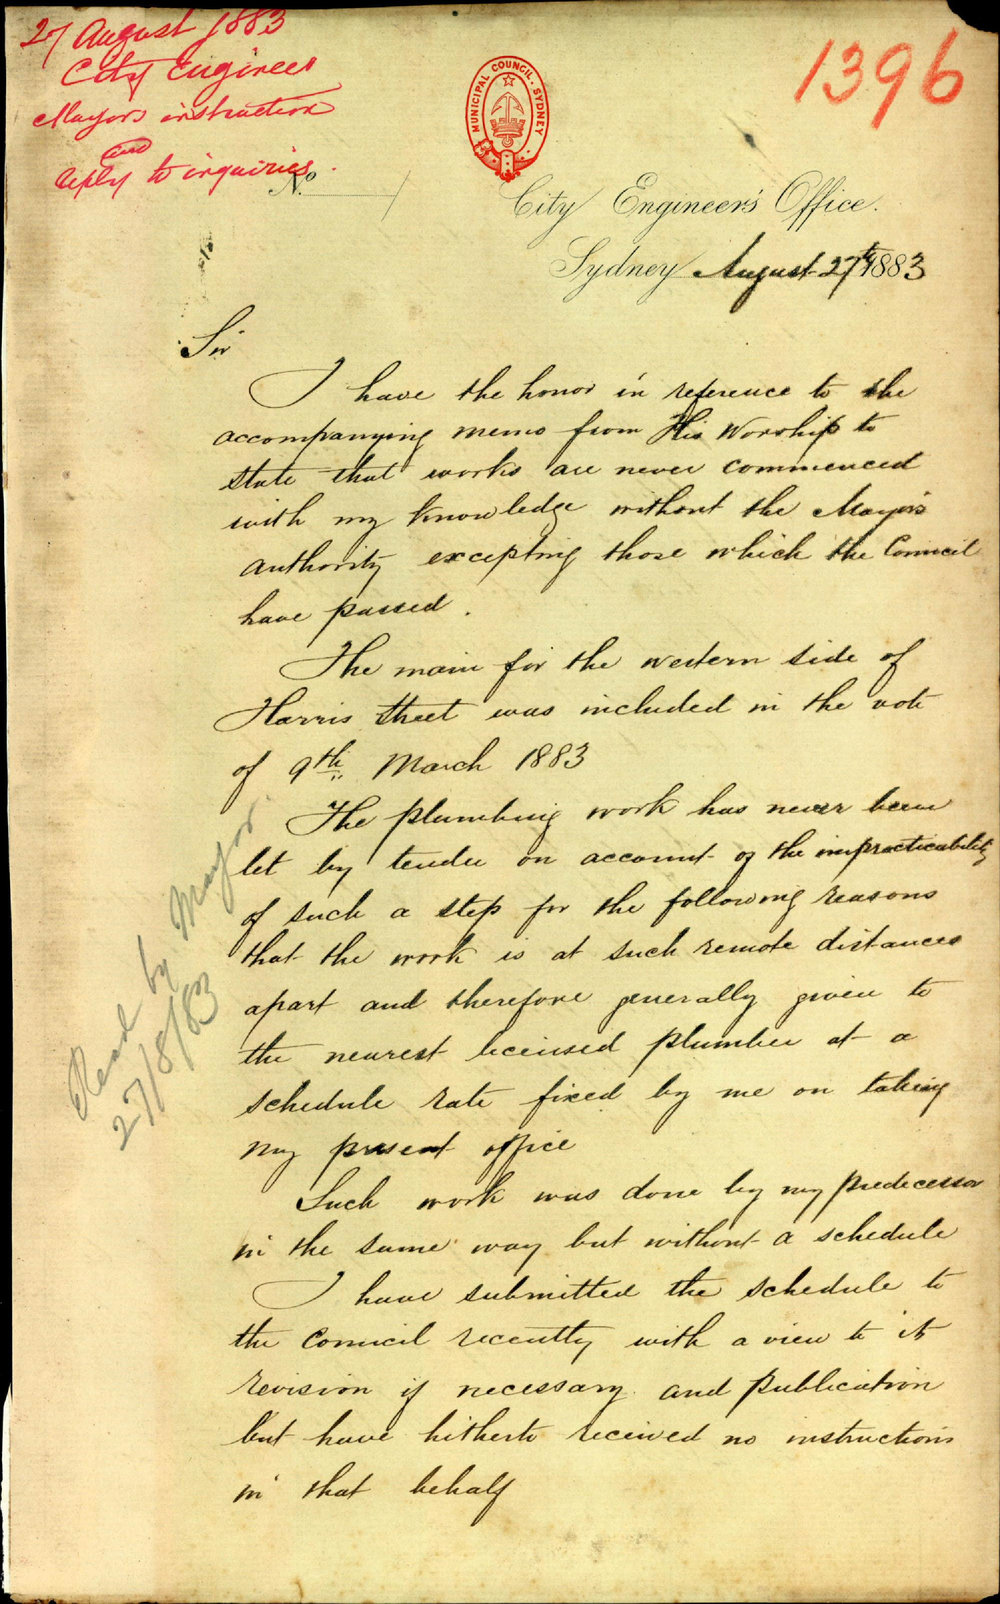 27 August 1883
City Engineer
Mayors instruction
and
reply to inquiries.
1396
MUNICIPAL COUNCIL. SYDNEY
No
City Engineer's Office.
Sydney August 27th 1883
Sir
I have the honor in reference to the
accompanying memo from His Worship to
state that works are never commenced
with my knowledge without the Mayor's
authority excepting those which the Council
have passed.
The main for the western side of
Harris Street was included in the vote
of 9th March 1883
The plumbing work has never been
let by tender on account of the impracticability
of such a step for the following reasons
that the work is at such remote distances
apart and therefore generally given to
the nearest licensed plumber at a
schedule rate fixed by me on taking
my present office
Such work was done by my predecessor
in the same way but without a schedule
I have submitted the schedule to
the Council recently with a view to its
revision if necessary and publication
but have hitherto received no instructions
in that behalf
Read by Mayor
27/8/83